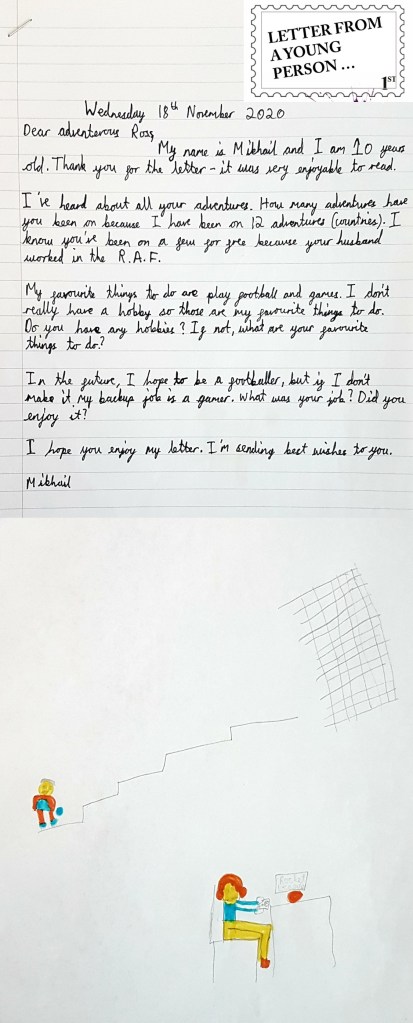 LETTER FROM
A YOUNG
PERSON ...
1ST
Wednesday 18th November 2020
Dear adventerous Ross,
My name is Mikhail and I am 10 years
old. Thank you for the letter - it was very enjoyable to read.
I've heard about all your adventures. How many adventures have
you been on because I have been on 12 adventures (countries). I
know you've been on a few for free because your husband
worked in the R.A.F.
My favourite things to do are play football and games. I don't
really have a hobby so those are my favourite things to do.
Do you have any hobbies? If not, what are your favourite
things to do?
In the future, I hope to be a footballer, but if I don't
make it my backup job is a gamer. What was your job? Did you
enjoy it?
I hope you enjoy my letter. I'm sending best wishes to you.
Mikhail